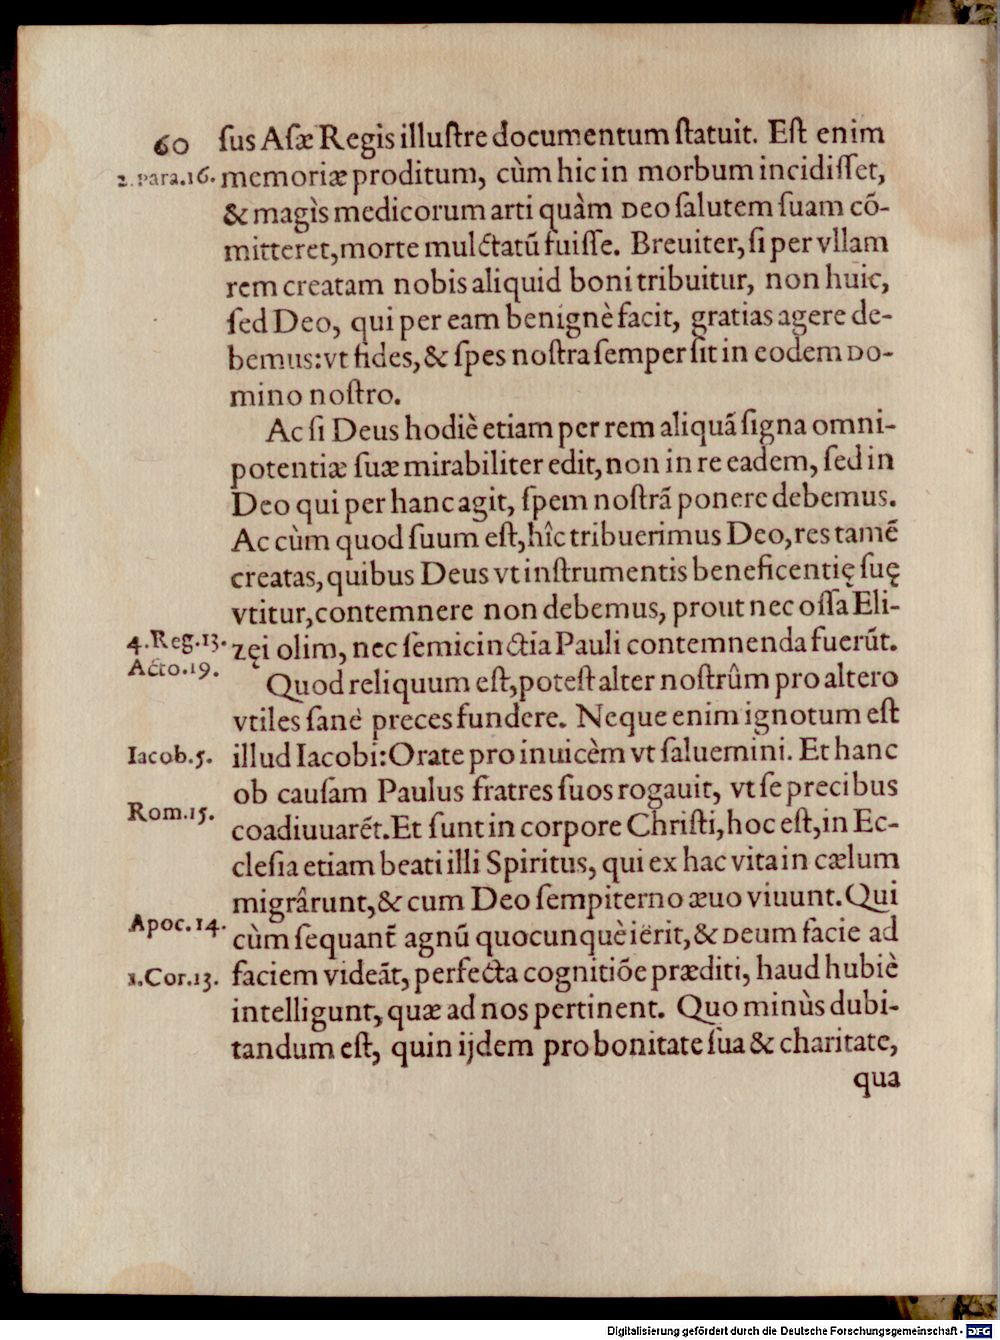 60 ſus Aſæ Regis illuſtre documentum ſtatuit. Eſt enim
2. Para. 16. memoriæ proditum, cùm hic in morbum incidiſſet,
& magis medicorum arti quàm Deo ſalutem ſuam cõ-
mitteret, morte mulctatũ fuiſſe. Breuiter, ſi per vllam
rem creatam nobis aliquid boni tribuitur, non huic,
ſed Deo, qui per eam benignè facit, gratias agere de-
bemus: vt fides, & ſpes noſtra ſemper ſit in eodem Do-
mino noſtro.
Ac ſi Deus hodiè etiam per rem aliquã ſigna omni-
potentiæ ſuæ mirabiliter edit, non in re eadem, ſed in
Deo qui per hanc agit, ſpem noſtrã ponere debemus.
Ac cùm quod ſuum eſt, hîc tribuerimus Deo, res tamẽ
creatas, quibus Deus vt inſtrumentis beneficentię ſuę
vtitur, contemnere non debemus, prout nec oſſa Eli-
4. Reg. 13. zęi olim, nec ſemicinctia Pauli contemnenda fuerũt.
Acto. 19.
Quod reliquum eſt, poteſt alter noſtrûm pro altero
vtiles ſanè preces fundere. Neque enim ignotum eſt
Iacob. 5. illud Iacobi: Orate pro inuicèm vt ſaluemini. Et hanc
ob cauſam Paulus fratres ſuos rogauit, vt ſe precibus
Rom. 15. coadiuuarẽt. Et ſunt in corpore Chriſti, hoc eſt, in Ec-
cleſia etiam beati illi Spiritus, qui ex hac vita in cælum
migrârunt, & cum Deo ſempiterno æuo viuunt. Qui
Apoc. 14. cùm ſequant̃ agnũ quocunquè iërit, & Deum facie ad
1. Cor. 13. faciem videãt, perfecta cognitiõe præditi, haud hubiè
intelligunt, quæ ad nos pertinent. Quo minùs dubi-
tandum eſt, quin ijdem pro bonitate ſua & charitate,
qua
Digitalisierung gefördert durch die Deutsche Forschungsgemeinschaft - DFG